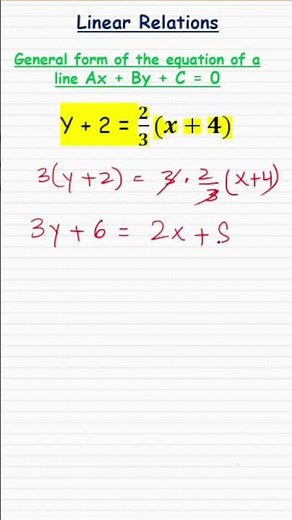 Linear Relations
General form of the equation of a
line Ax + By + C = 0
Y + 2 = 2/3 (x + 4)
3(y+2) = 3 · 2/3 (x+4)
3y + 6 = 2x + S